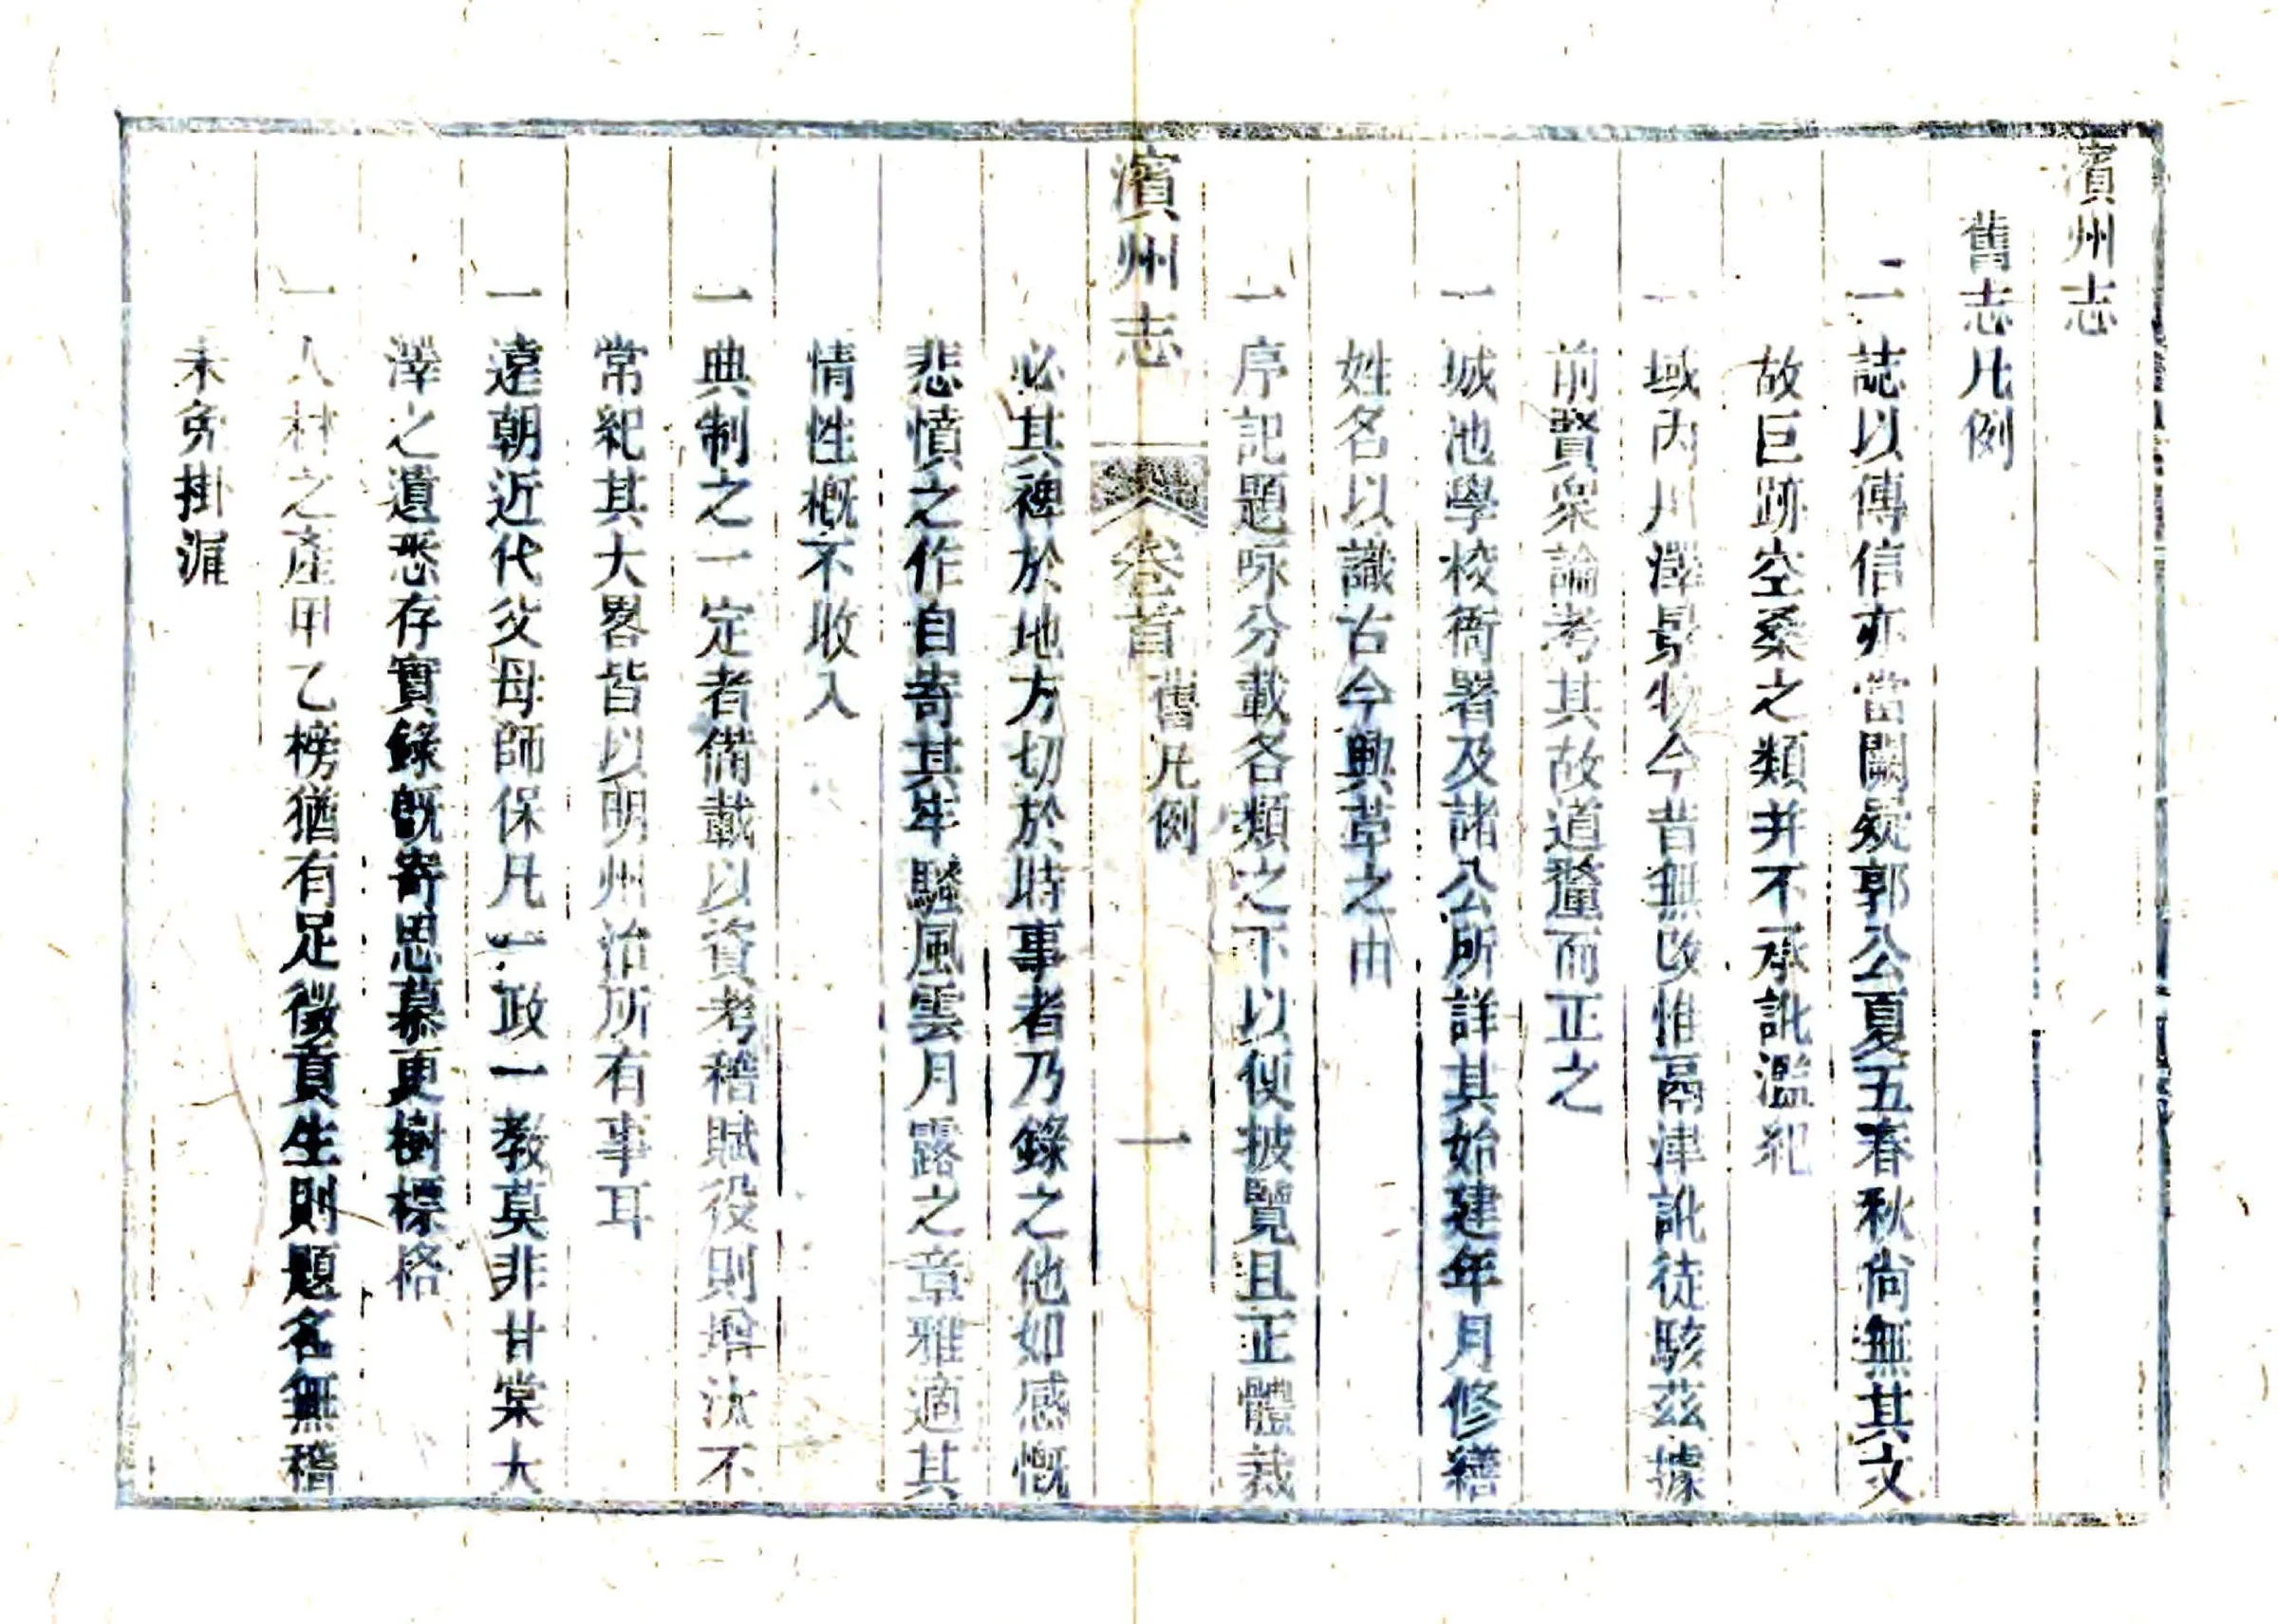 濱州志
舊志凡例
一誌以傳信亦當闕疑郭公夏五春秋尚無其文
故巨跡空桑之類并不承訛濫紀
一域內川澤景物今昔無改惟鬲津訛徒駭茲據
前賢衆論考其故道釐而正之
一城池學校衙署及諸公所詳其始建年月修繕
姓名以識古今興革之由
一序記題咏分載各類之下以便披覽且正體裁
濱州志 卷首 舊凡例 一
必其裨於地方切於時事者乃錄之他如感慨
悲憤之作自寄其牢騷風雲月露之章雅適其
情性概不收入
一典制之一定者備載以資考稽賦役則增汰不
常紀其大畧皆以明州治所有事耳
一遠朝近代父母師保凡一政一教莫非甘棠大
澤之遺悉存實錄旣寄思慕更樹標格
一人材之產甲乙榜猶有足徵貢生則題名無稽
未免掛漏